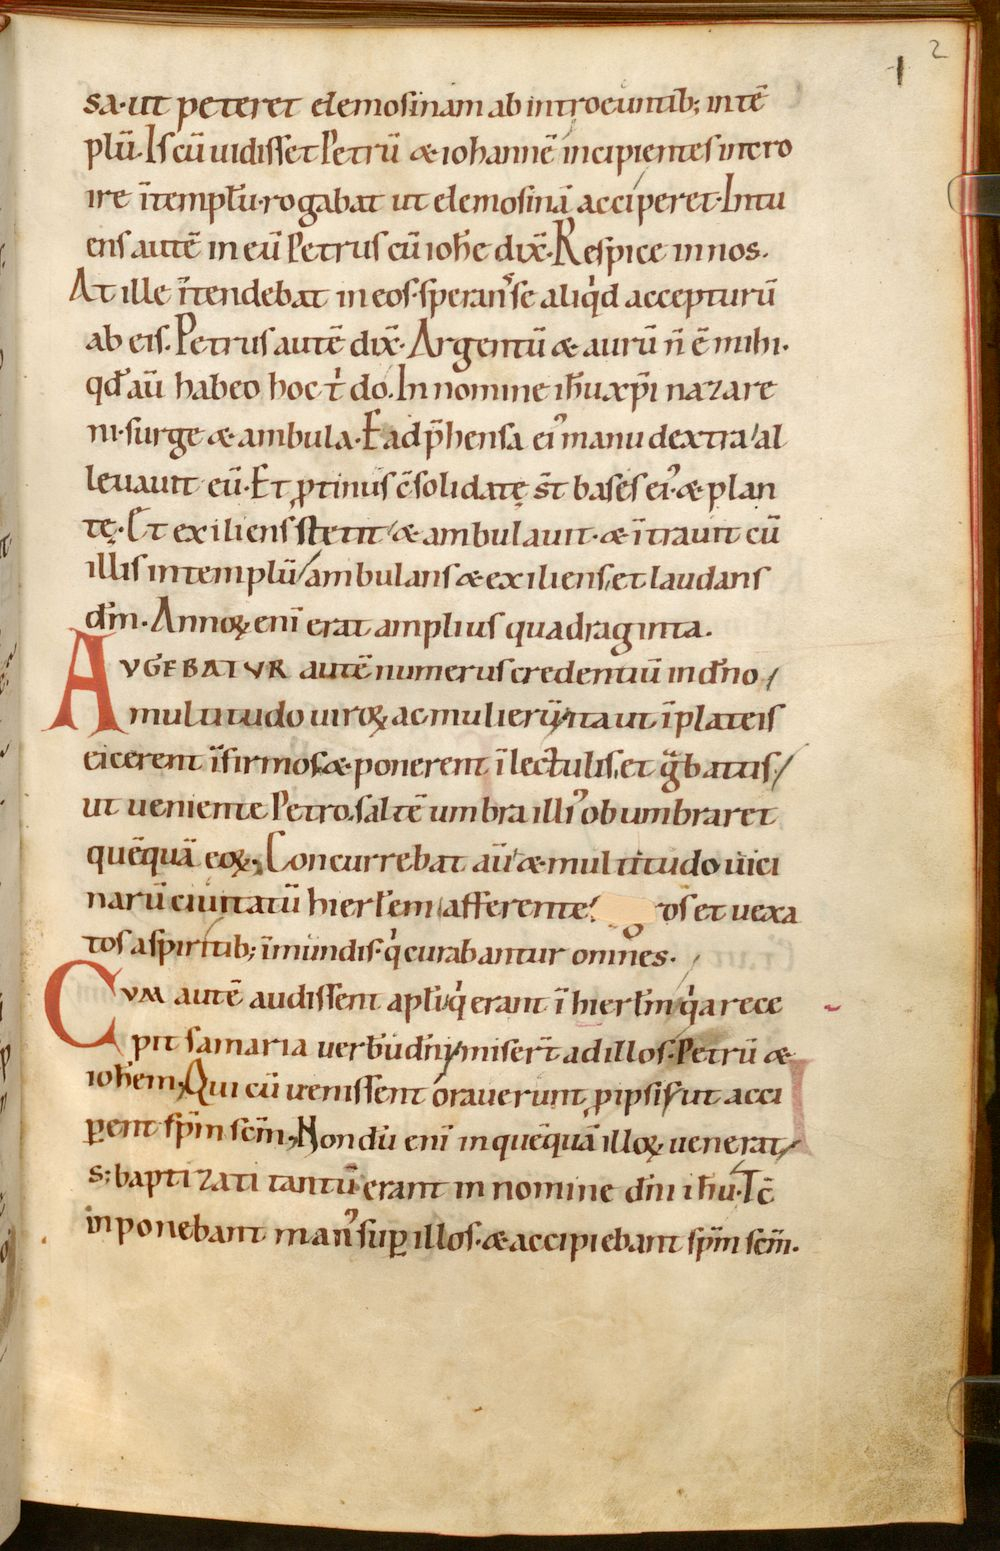 2
1
sa·ut peteret elemosinam ab introeuntib; in tē
plū. Is cū uidisset Petrū æ iohannē incipientes intro
ire ī templū·rogabat ut elemosinā acciperet·Intu
ens autē in eū Petrus cū ioħe dix̄·Respice in nos.
At ille ītendebat in eos·sperans se aliqd accepturū
ab eis. Petrus autē dix̄·Argentū æ aurū n̄ ē mihi·
qđ aū habeo hoc t do. In nomine iħu xp̄i nazare
ni·surge æ ambula·Et adp̄hensa ei' manu dextra al
leuauit eū·Et ꝓtinus c̄solidatę st̄ bases ei' æ plan
tę·Et exiliens stetit æ ambulauit·æ ītrauit cū
illis in templū ambulans æ exiliens, et laudans
dm̄. Annoꝝ enī erat amplius quadraginta.
AVGEBATVR autē numerus credentiū in dn̄o
multitudo uiroꝝ ac mulierū, ita ut ī plateis
eicerent īfirmos, æ ponerent ī lectulis, et gbattis,
ut ueniente Petro, saltē umbra illi' obumbraret
quēquā eoꝝ. Concurrebat aū æ multitudo uici
narū ciuitatū hierłem afferentes ros et uexa
tos a spiritib; īmundis·q curabantur omnes.
CVM autē audissent apłi q erant ī hierłm q a rece
pit samaria uerbū dn̄i, miser̄t ad illos·Petrū æ
ioħem, Qui cū uenissent orauerunt ꝓ ipsis ut acci
ꝑent sp̄m scm̄, Nondū enī in quēquā illoꝝ uenerat,
s; baptizati tantū erant in nomine dn̄i iħu·Tc̄
inponebant man' suꝑ illos·æ accipiebant sp̄m scm̄.